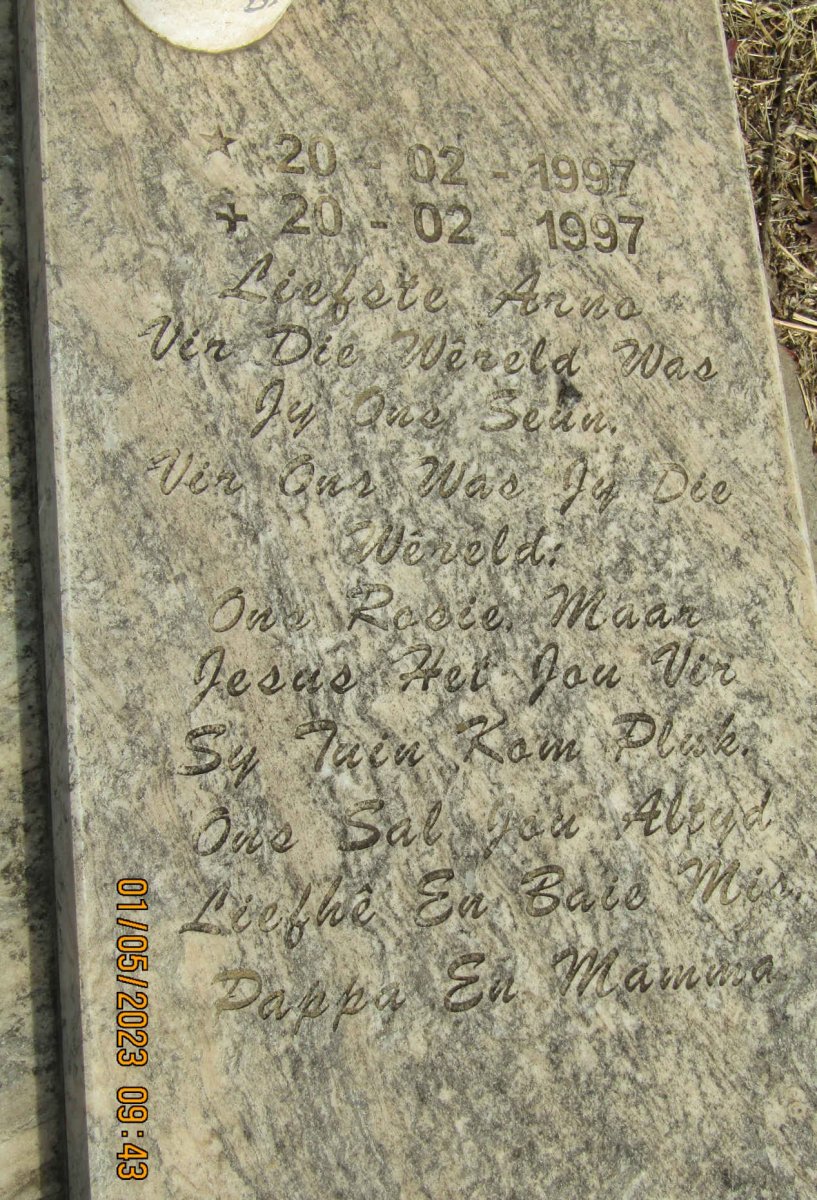 ★ 20 - 02 - 1997
✝ 20 - 02 - 1997
Liefste Arno
Vir Die Wêreld Was
Jy Ons Seun.
Vir Ons Was Jy Die
Wêreld:
Ons Rosie. Maar
Jesus Het Jou Vir
Sy Tuin Kom Pluk.
Ons Sal Jou Altyd
Liefhê En Baie Mis.
Pappa En Mamma
01/05/2023 09:43